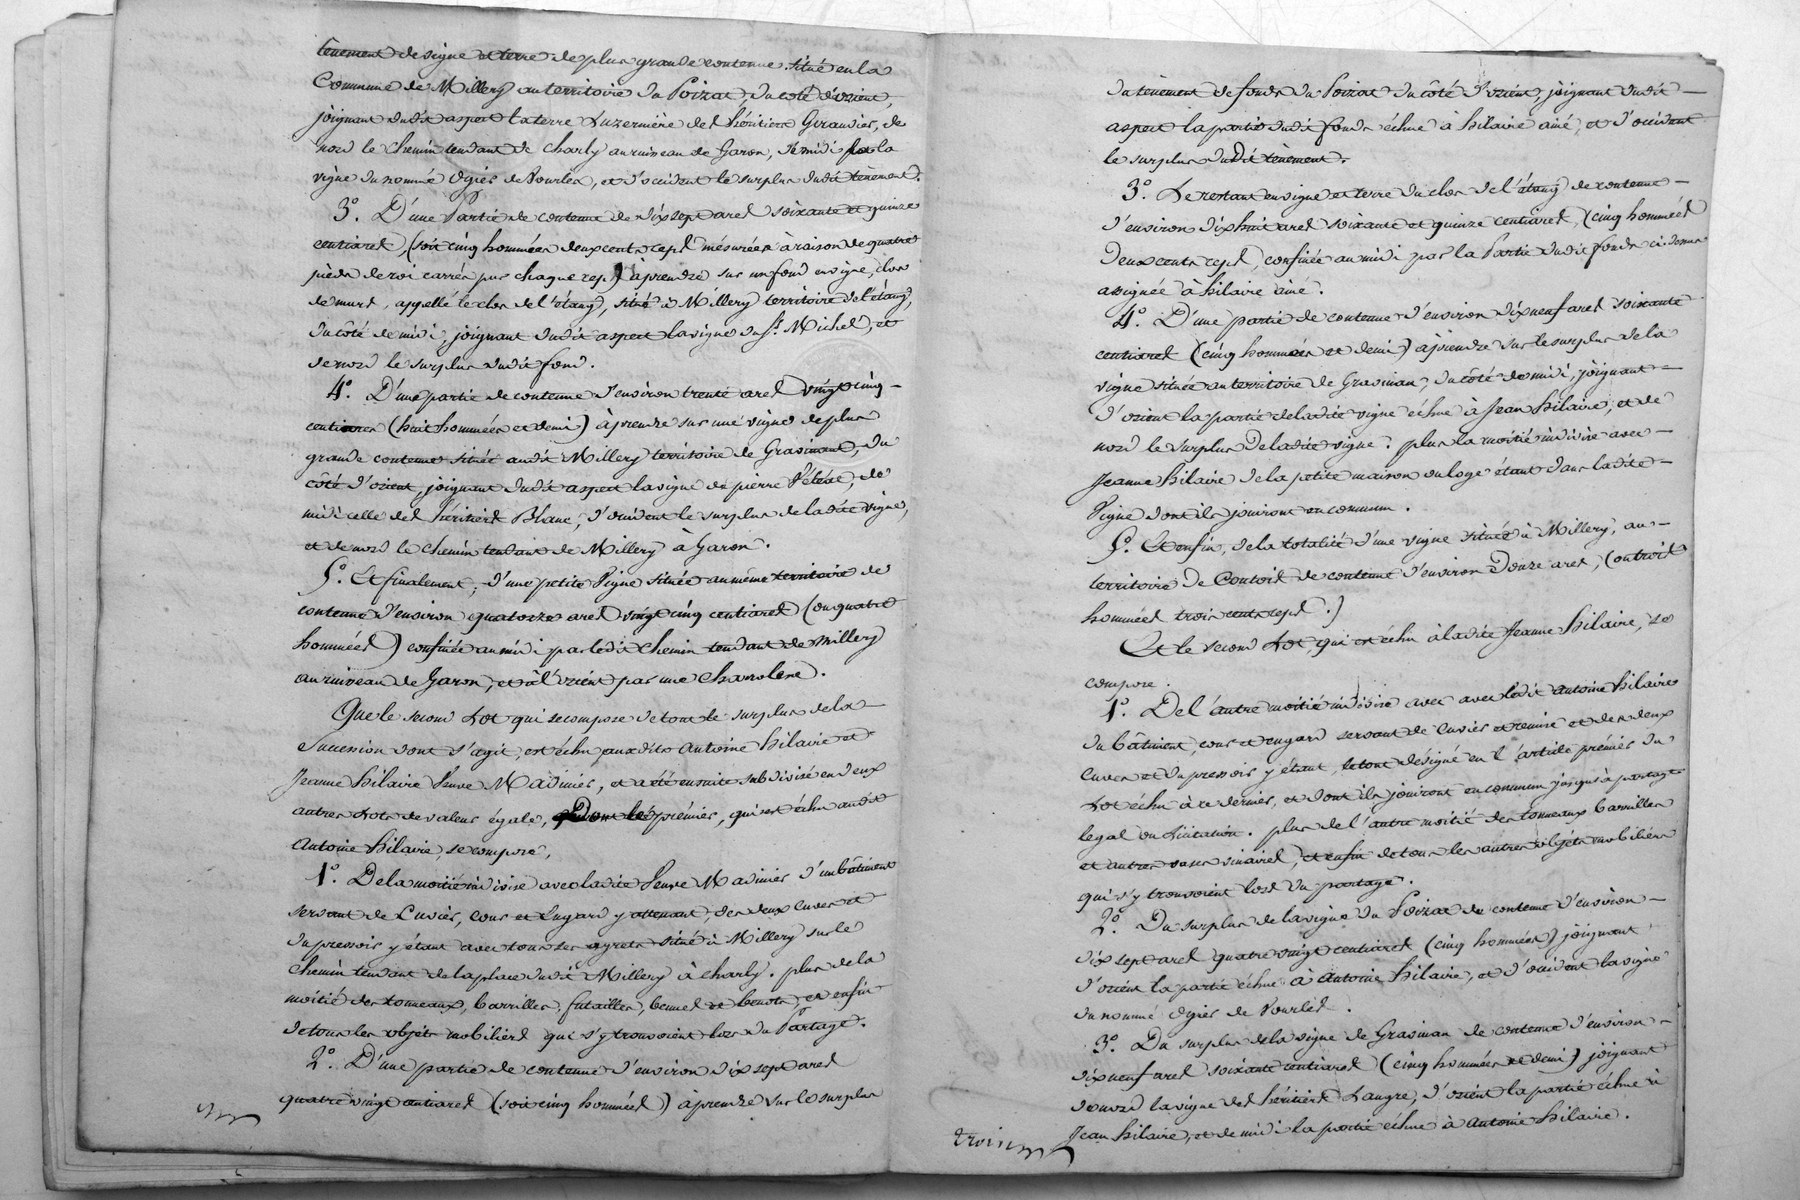 tenement de vigne et terre de plus grande contenue situé en la
Commune de Millery au territoire du Poizat, du coté d'orient,
joignant dudit aspect la terre Luzernière des héritiers Giraudier, de
nord le chemin tendant de Charly au ruisseau de Garon, de midi la
vigne du nommé Ogier de Vourles, et d'occident le surplus dudit tènement.
3º. D'une Partie de contenue de dix sept ares soixante et quinze
centiares, (soit cinq hommées deux cents seps mesurées à raison de quatre
pieds de roi carrés pour chaque sep) à prendre sur un fond en vigne, clos
de murs, appellé le clos de l'étang, situé à Millery territoire de l'étang,
du côté de midi, joignant dudit aspect la vigne du Sr. Michel, et
de nord le surplus dudit fond.
4º. D'une partie de contenue d'environ trente ares vingt cinq
centiares (huit hommées et demi) à prendre sur une vigne de plus
grande contenue située audit Millery territoire de Grasinant, du
côté d'orient, joignant dudit aspect la vigne de pierre Pétéat, de
midi celle des héritiers Blanc, d'occident le surplus de ladite vigne,
et de nord le chemin tendant de Millery à Garon.
5º. Et finalement, d'une petite Vigne située au même territoire de
contenue d'environ quatorze ares vingt cinq centiares (ou quatre
hommées) confinée au midi par ledit chemin tendant de Millery
au ruisseau de Garon, et à l'orient par une Charolene.
Que le second Lot qui se compose de tout le surplus de la
Succession dont s'agit, est échu auxdits Antoine Hilaire et
Jeanne Hilaire Veuve Madinier, et a été ensuite subdivisé en deux
autres Lots de valeur égale, Dont le premier, qui est échu audit
Antoine Hilaire, se compose,
1º. De la moitié indivise avec ladite Veuve Madinier d'un bâtiment
servant de Cuvier, Cour et Engard y attenant, des deux Cuves et
du pressoir y étant avec tous ses agrets situé à Millery sur le
Chemin tendant de la place dudit Millery à Charly. plus de la
moitié des tonneaux, barrilles, futailles, bennes et benots, et enfin
de tous les objets mobiliers qui s'y trouvoient lors du Partage.
2º. D'une partie de contenue d'environ dix sept ares
quatre vingt centiares (soit cinq hommées) à prendre sur le surplus
du tènement de fonds du Poizat du côté d'orient, joignant dudit
aspect la partie dudit fonds échue à hilaire ainé, et d'occident
le surplus dudit tènement.
3º. Le restant en vigne et terre du clos de l'étang de contenue
d'environ dix huit ares soixante et quinze centiares, (cinq hommées
deux cents seps), confinée au midi par la Partie dudit fonds ci-dessus
assignée à hilaire ainé.
4º. D'une partie de contenue d'environ dix neuf ares soixante
centiares (cinq hommées et demi) à prendre sur le surplus de la
vigne située au territoire de Grasinan, du côté de midi, joignant
d'orient la partie de ladite vigne échue à Jean hilaire, et de
nord le surplus de ladite vigne. plus la moitié indivise avec
Jeanne hilaire de la petite maison ou loge étant dans ladite
Vigne dont ils jouiront en commun.
5º. Et enfin, de la totalité d'une vigne située à Millery, au
territoire de Coutois de contenue d'environ Douze ares, (ou trois
hommées trois cents seps.)
Et le second Lot, qui est échu à ladite Jeanne Hilaire, se
compose.
1º. De l'autre moitié indivise avec avec ledit Antoine hilaire
du bâtiment, cour et engard servant de cuvier et remise et des deux
cuves et du pressoir y étant, le tout désigné en l'article premier du
Lot échu à ce dernier, et dont ils jouiront en commun jusqu'à partage
legal ou licitation. plus de l'autre moitié des tonneaux barrilles
et autres vases vinaires, et enfin de tous les autres objets mobiliers
qui s'y trouvoient lors du partage.
2º. Du surplus de la vigne du Poizat de contenue d'environ
dix sept ares quatre vingt centiares (cinq hommées) joignant
d'orient la partie échue à Antoine Hilaire, et d'occident la vigne
du nommé Ogier de Vourles.
3º. Du surplus de la vigne de Grasinan de contenue d'environ
dix neuf ares soixante centiares (cinq hommées et demi) joignant
de nord la vigne des héritiers Laugre, d'orient la partie échue à
Jean hilaire, et de midi la partie échue à Antoine Hilaire.
trois